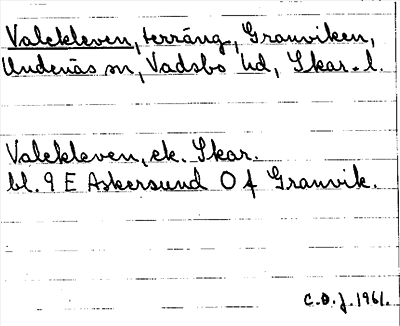 Valekleven, terräng, Granviken,
Undenäs sn, Vadsbo hd, Skar. l.
Valekleven, ek. Skar.
bl. 9 E Askersund O f Granvik.
C.O.J. 1961.